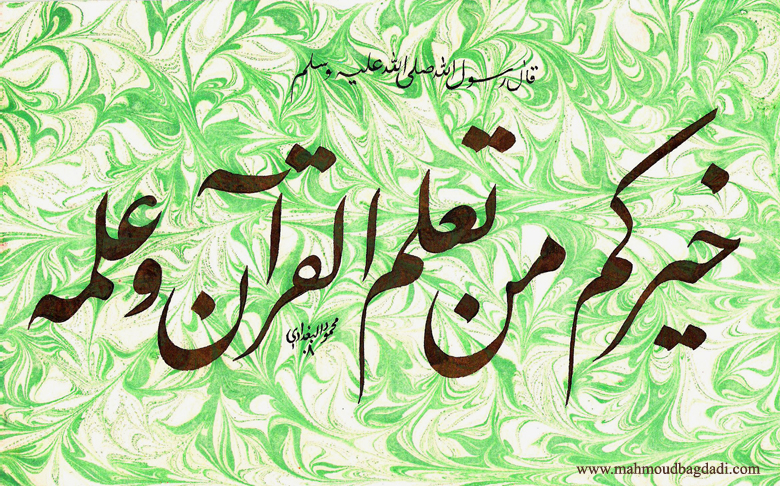 قال رسول الله صلى الله عليه وسلم
خيركم من تعلم القرآن وعلمه
محمود البغدادي
٠٨
www.mahmoudbagdadi.com